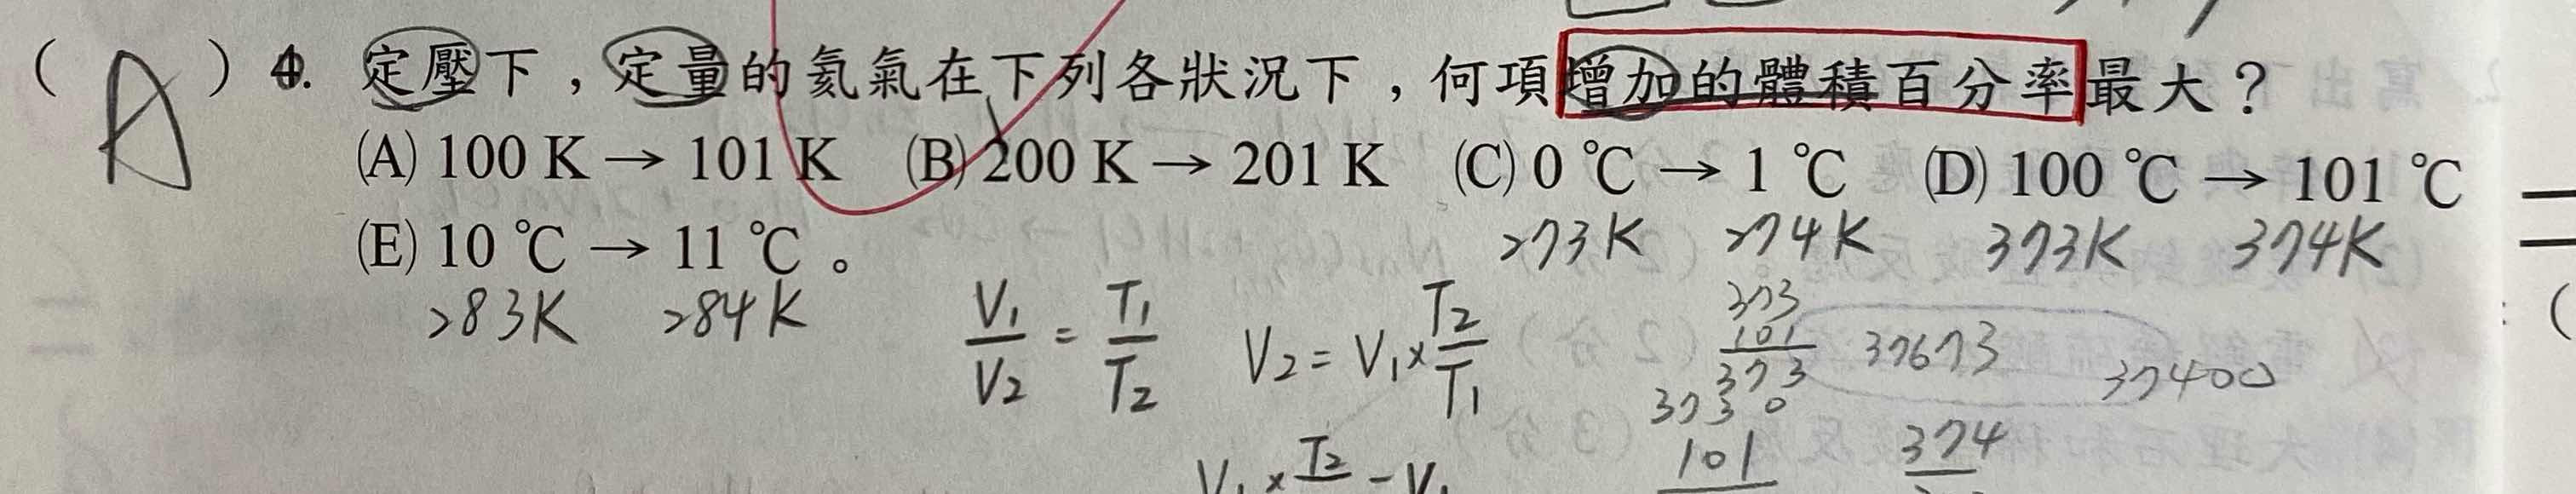 ( A ) 4. 定壓下，定量的氦氣在下列各狀況下，何項增加的體積百分率最大？
(A) 100 K → 101 K (B) 200 K → 201 K (C) 0 ℃ → 1 ℃ (D) 100 ℃ → 101 ℃
273K 274K 373K 374K
(E) 10 ℃ → 11 ℃ 。
283K 284K
V₁/V₂ = T₁/T₂ V₂ = V₁ × T₂/T₁
373
101
373
3730
37673 37400
101 374
V₁ × T₂ - V₁